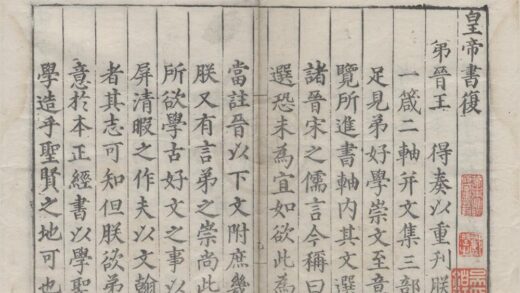 皇帝書復
弟晉王　得奏以重刋朕
一箴二軸并文集三部
足見弟好學崇文至意
覽所進書軸內其文選
諸晉宋之儒言今稱曰
選恐未為宜如欲此為
當註晉以下文附庶幾
朕又有言弟之崇尚此
所欲學古好文之事以
屏清暇之作夫以文翰
者其志可知但朕欲弟
意於本正經書以學聖
學造乎聖賢之地可也